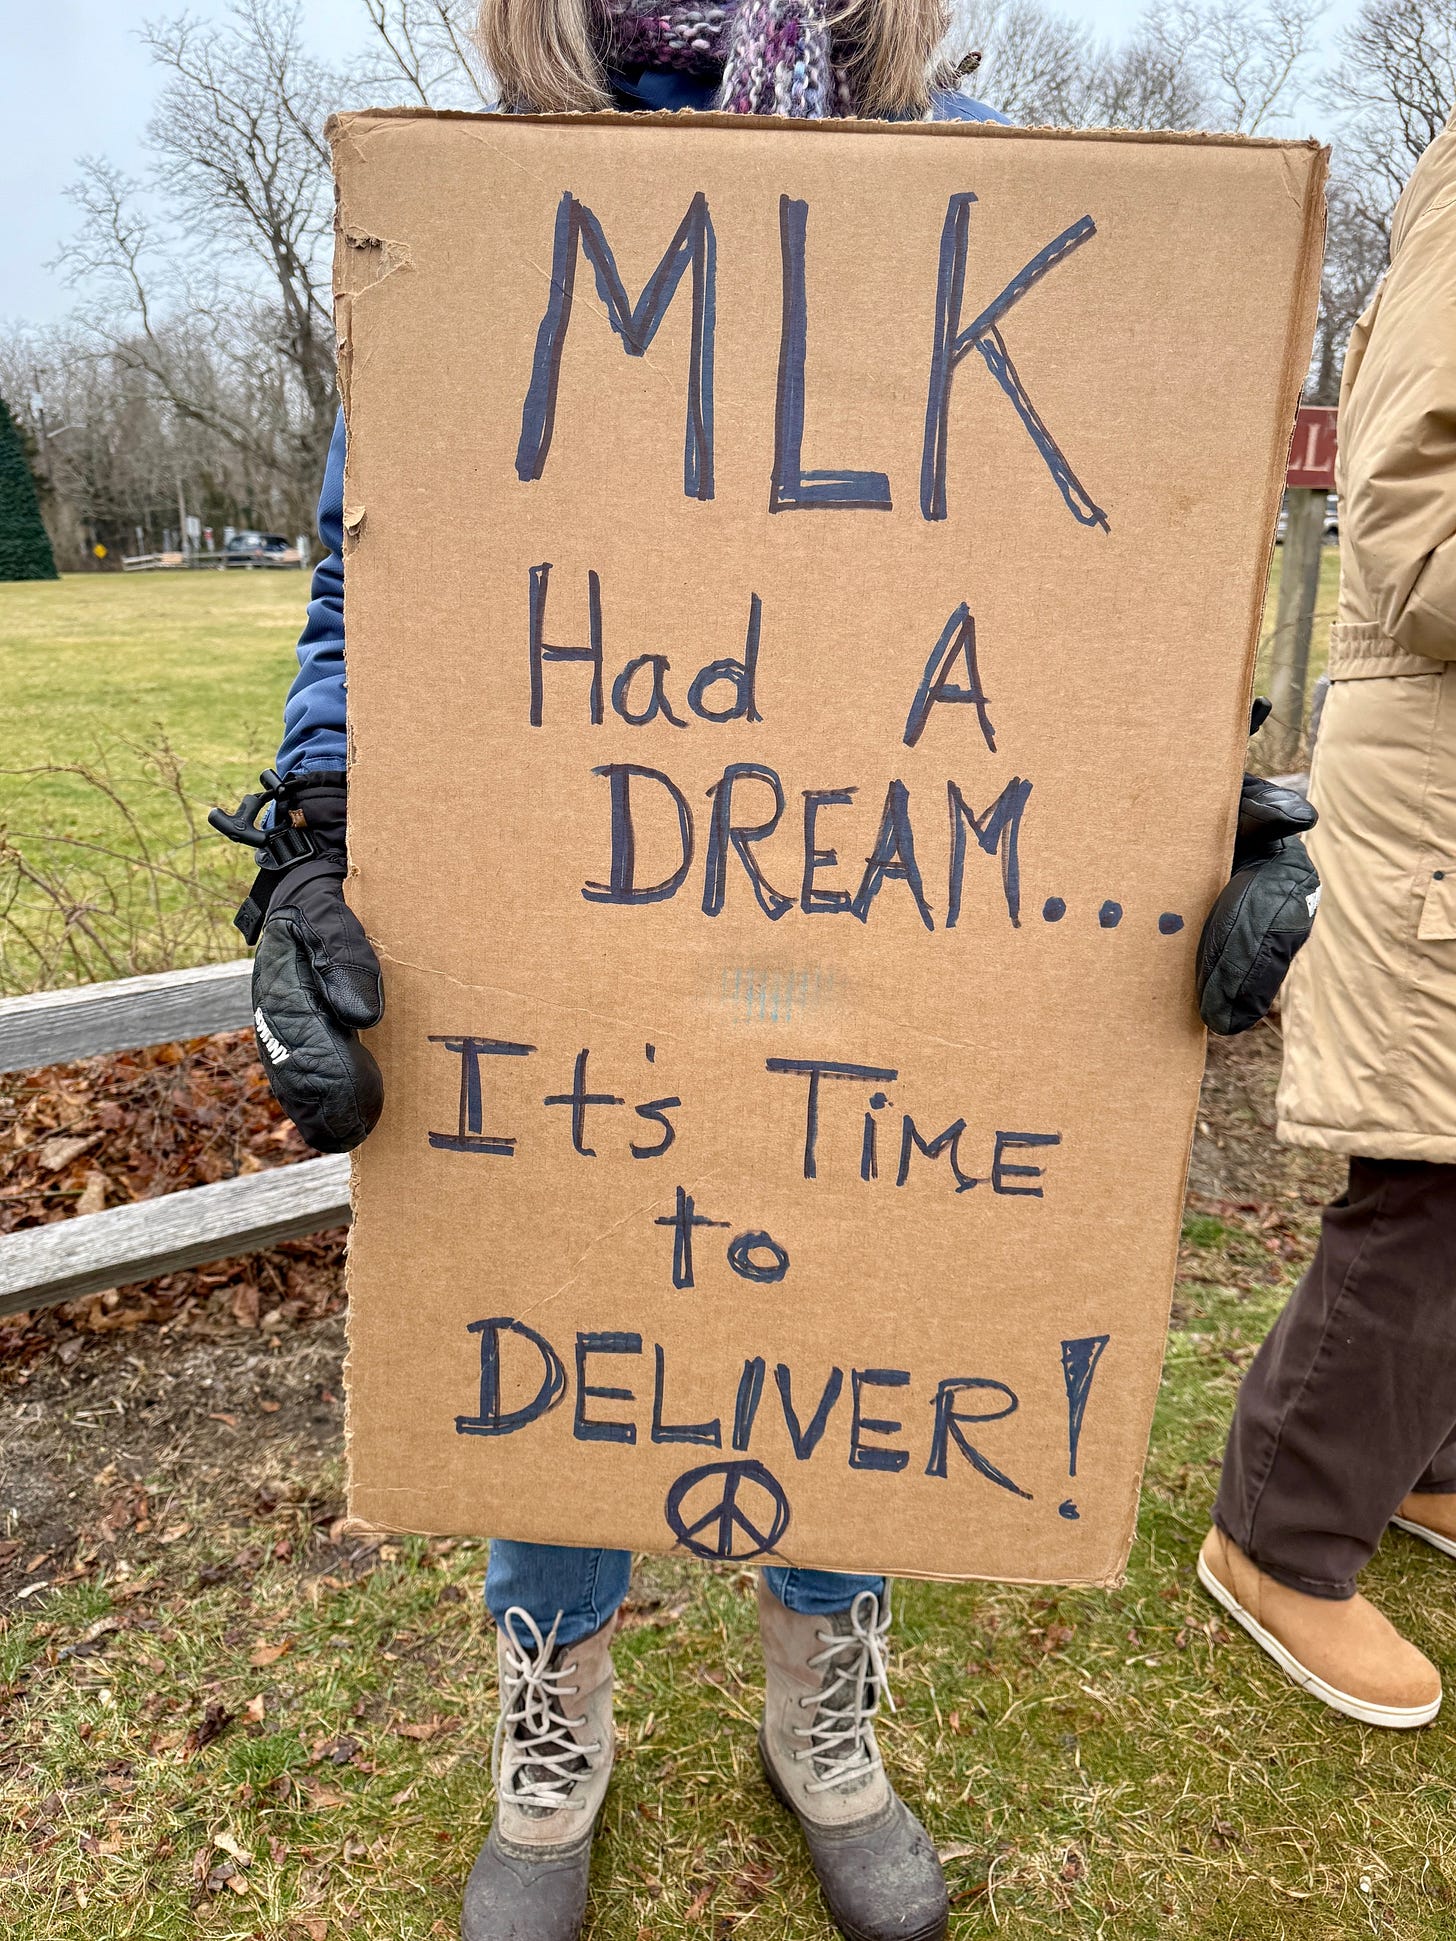 MLK
Had A
DREAM...
It's Time
to
DELIVER!